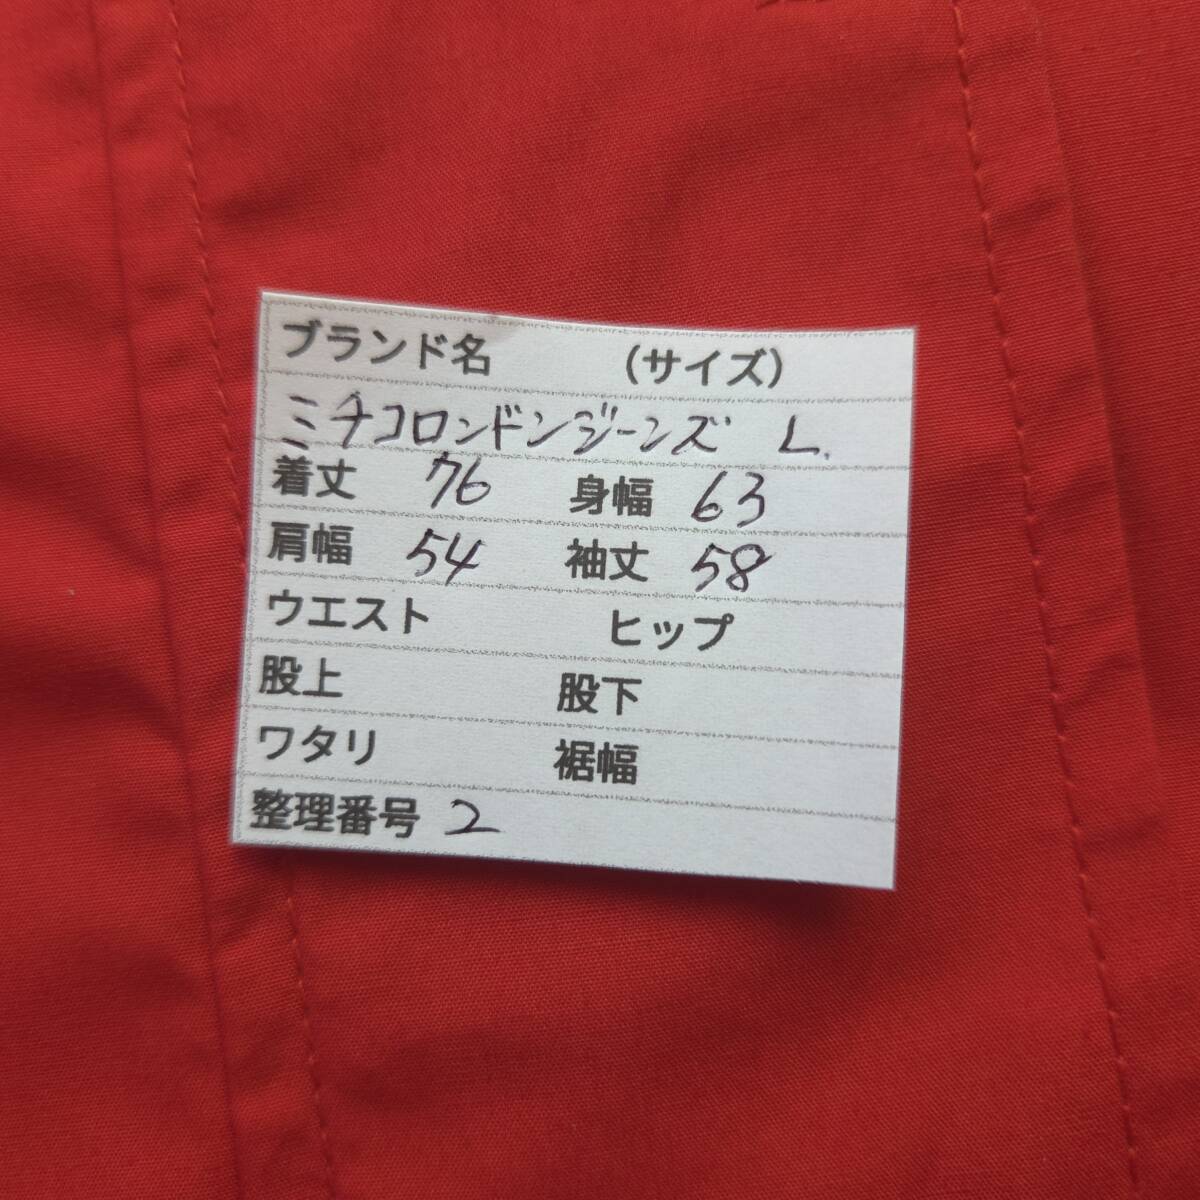 ブランド名 （サイズ）
ミチコロンドンジーンズ L.
着丈 76 身幅 63
肩幅 54 袖丈 58
ウエスト ヒップ
股上 股下
ワタリ 裾幅
整理番号 2